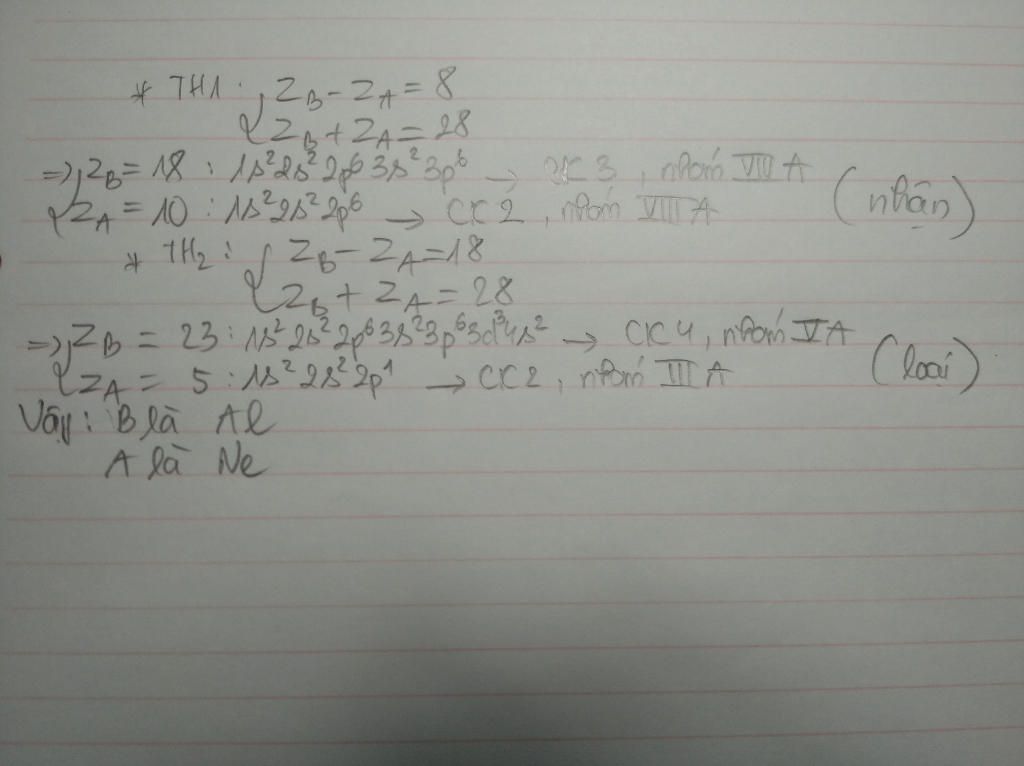 * TH1 : { Z_B - Z_A = 8
Z_B + Z_A = 28
=> { Z_B = 18 : 1s²2s²2p⁶3s²3p⁶ → CK 3, nhóm VIII A
Z_A = 10 : 1s²2s²2p⁶ → CK 2, nhóm VIII A (nhận)
* TH₂ : { Z_B - Z_A = 18
Z_B + Z_A = 28
=> { Z_B = 23 : 1s²2s²2p⁶3s²3p⁶3d³4s² → CK 4, nhóm V A
Z_A = 5 : 1s²2s²2p¹ → CK 2, nhóm III A (loại)
Vậy : B là Al
A là Ne